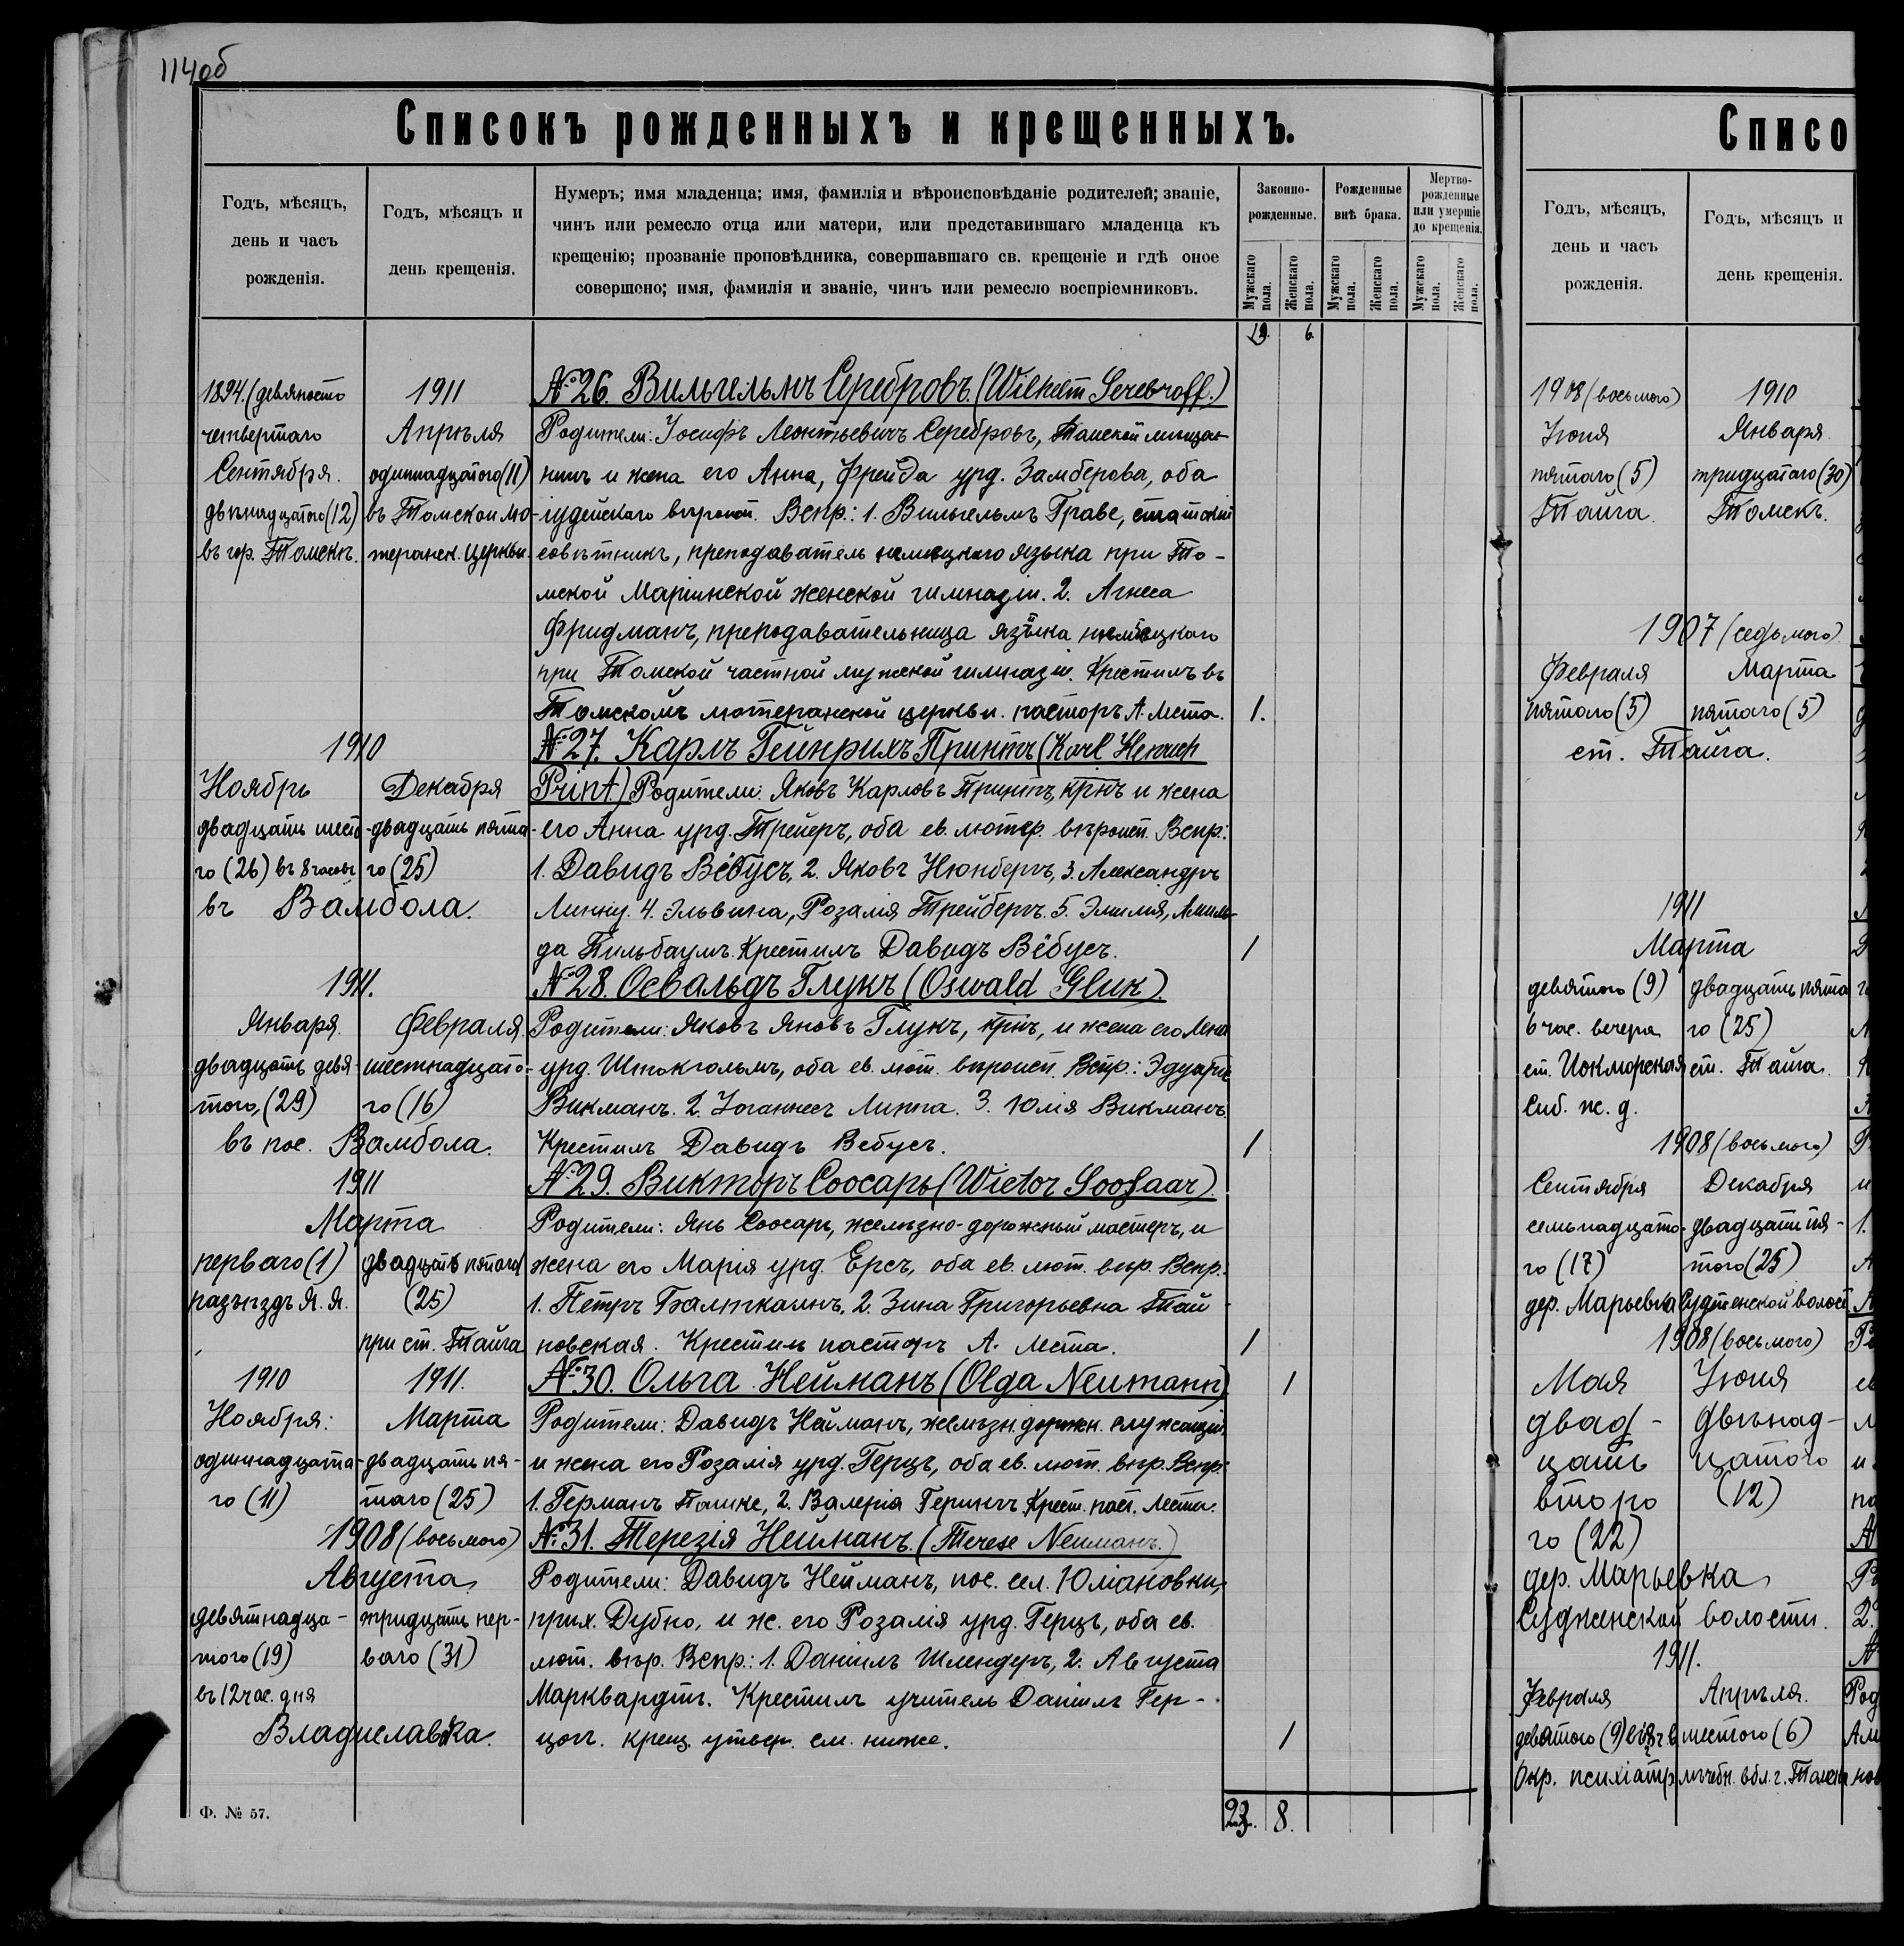 114об
Списокъ рожденныхъ и крещенныхъ.
Годъ, мѣсяцъ,
день и часъ
рожденія.
Годъ, мѣсяцъ и
день крещенія.
Нумеръ; имя младенца; имя, фамилія и вѣроисповѣданіе родителей; званіе,
чинъ или ремесло отца или матери, или представившаго младенца къ
крещенію; прозваніе проповѣдника, совершавшаго св. крещеніе и гдѣ оное
совершено; имя, фамилія и званіе, чинъ или ремесло воспріемниковъ.
Законно-
рожденные.
Рожденные
внѣ брака.
Мертво-
рожденные
или умершіе
до крещенія.
Мужскаго пола.
Женскаго пола.
Мужскаго пола.
Женскаго пола.
Мужскаго пола.
Женскаго пола.
19. 6.
1894. (девяносто
четвертаго
Сентября.
двѣнадцатаго (12)
въ гор. Томскѣ.
1911
Апрѣля
одиннадцатого (11)
въ Томской лю-
теранск. церкви.
№ 26. Вильгельмъ Серебровъ. (Wilhelm Serebroff.)
Родители: Іосифъ Леонтьевичъ Серебровъ, Томской мѣща-
нинъ и жена его Анна, Фрейда урд. Замберова, оба
іудейскаго вѣроисп. Вспр.: 1. Вильгельмъ Граве, статскій
совѣтникъ, преподаватель нѣмецкаго языка при То-
мской Маріинской женской гимназіи. 2. Агнеса
Фридманъ, преподавательница языка нѣмецкаго
при Томской частной мужской гимназіи. Крестилъ въ
Томскомъ лютеранской церкви. пасторъ А. Леста. 1.
1910
Ноябрь
двадцать шест
го (26) въ 8 часовъ
въ Вамбола.
Декабря
двадцать пята-
го (25)
№ 27. Карлъ Гейнрихъ Принтъ (Karl Henrich
Print) Родители: Яковъ Карловъ Принтъ, крнъ и жена
его Анна урд. Трейеръ, оба ев. лютер. вѣроисп. Вспр:
1. Давидъ Вёбусъ, 2. Яковъ Нюнбергъ, 3. Александръ
Линну. 4. Эльвина, Розалія Трейбергъ. 5. Эмилія, Амиль-
да Пильбаумъ. Крестилъ Давидъ Вёбусъ. 1
1911.
Января.
двадцать девя-
того, (29)
въ пос. Вамбола.
Февраля.
шестнадцато-
го (16)
№ 28. Освальдъ Глукъ (Oswald Gluk).
Родители: Яковъ Яновъ Глукъ, крнъ, и жена его Лена
урд. Штокгольмъ, оба ев. лют. вѣроисп. Вспр.: Эдуартъ
Викманъ. 2. Іоганнесъ Линна. 3. Юлія Викманъ.
Крестилъ Давидъ Вебусъ. 1
1911
Марта
перваго (1)
разъѣздъ Я. Я.
двадцать пятого
(25)
при ст. Тайга
№ 29. Викторъ Соосаръ (Wictor Soosaar).
Родители: Янъ Соосаръ, желѣзно-дорожный мастеръ, и
жена его Марія урд. Ерсъ, оба ев. лют. вѣр. Вспр.:
1. Петръ Балткаинъ, 2. Зина Григорьевна Тай-
новская. Крестилъ пасторъ А. Леста. 1
1910
Ноября:
одиннадцата-
го (11)
1911.
Марта
двадцать пя-
таго (25)
№ 30. Ольга Нейманъ (Olga Neumann) 1
Родители: Давидъ Нейманъ, желѣзн. дорожн. служащій,
и жена его Розалія урд. Герцъ, оба ев. лют. вѣр. Вспр:
1. Германъ Пашке, 2. Валерія Герингъ. Крест. паст. Леста.
1908 (восьмого)
Августа
девятнадца-
того (19)
въ 12 час. дня
Владиславка.
тридцать пер-
ваго (31)
№ 31. Терезія Нейманъ. (Therese Neumann.)
Родители: Давидъ Нейманъ, пос. сел. Юліановки,
прих. Дубно, и ж. его Розалія урд. Герцъ, оба ев.
лют. вѣр. Вспр.: 1. Даніилъ Шлендеръ, 2. Августа
Марквардтъ. Крестилъ учитель Даніилъ Гер-
цогъ. крещ. утвер. см. ниже. 1
23. 8.
Ф. № 57.
Списо
Годъ, мѣсяцъ,
день и часъ
рожденія.
Годъ, мѣсяцъ и
день крещенія.
1908 (восьмого)
Іюня
пятаго (5)
Тайга.
1910
Января
тридцатаго (30)
Томскъ.
1907 (седьмого)
Февраля
пятаго (5)
Марта
пятаго (5)
ст. Тайга.
1911
Марта
девятого (9)
6 час. вечера
ст. Ижморская
Сиб. ж. д.
двадцать пята
го (25)
ст. Тайга.
1908 (восьмого)
Сентября
семьнадцато-
го (17)
дер. Марьевка
Декабря
двадцать пя-
того (25)
Судженской волост.
1908 (восьмого)
Мая
двад-
цать
второ
го (22)
Іюня
двѣнад-
цатого
(12)
дер. Марьевка
Судженской волости.
1911.
Февраля
девятого (9)
Окр. психіатр.
Апрѣля.
шестого (6)
лѣчебн. вбл. г. Томска